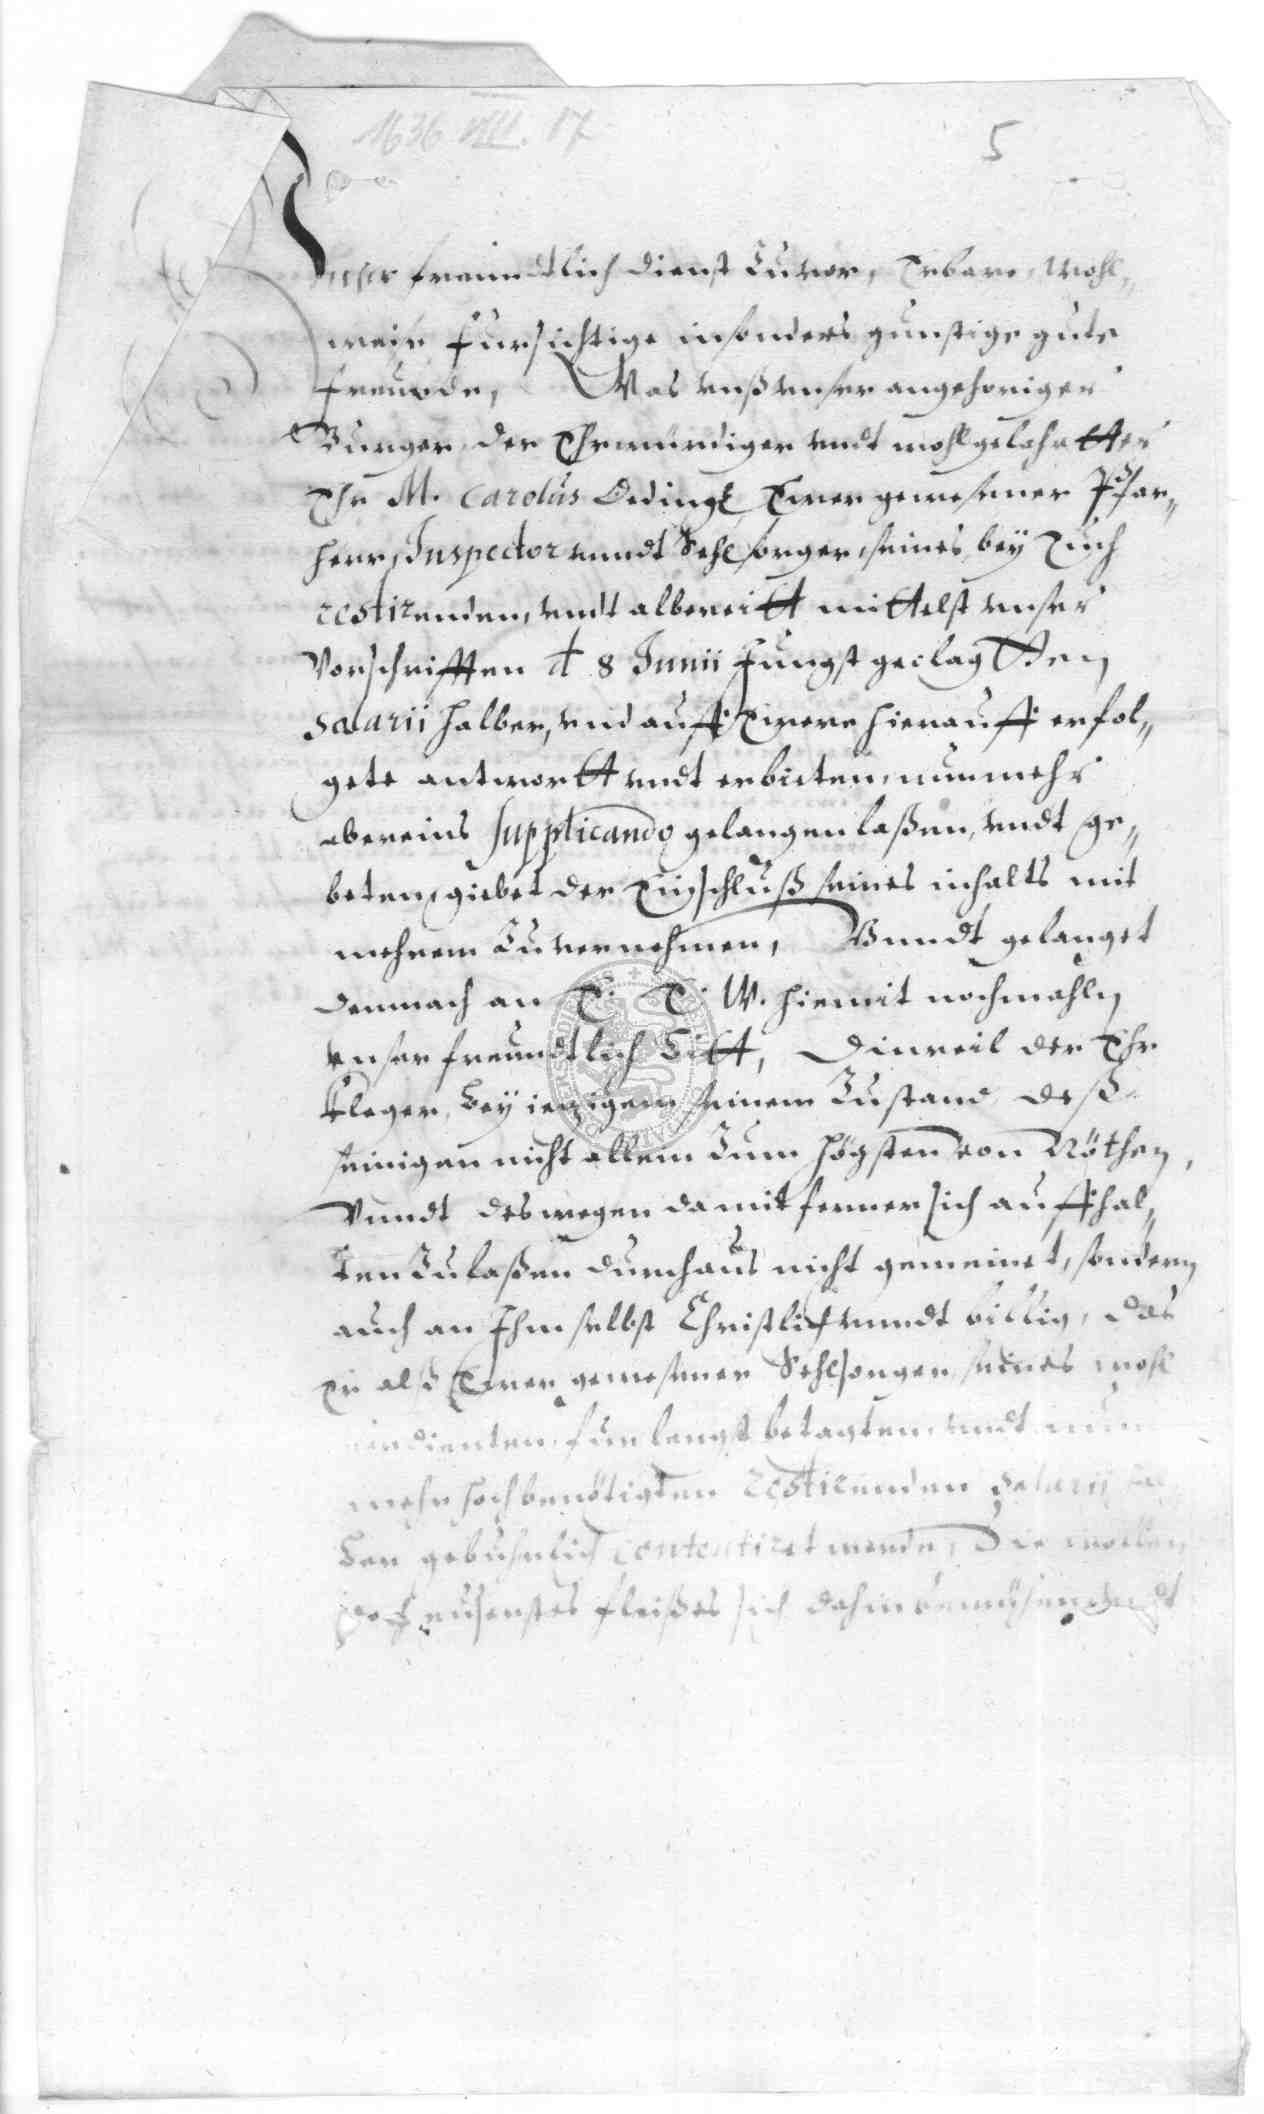 1636 VIII. 17
5
Unser freundtlich dienst Zuvor, Erbare, Wohl„
weise fursichtige insonders gunstige gute
freunde, Was unß unser angehoriger
Burger der Ehrwürdiger undt wohlgelahrtter
Ehr M. Carolus Oedingk Ewer gewesener Pfar„
herr, Inspector unndt Sehlsorger, seines bey Euch
restirenden, undt albereitt mittelst unser
Vorschrifften d 8 Junii jungst geclagtten
Salarii halber, und auff Ewere hierauff erfol„
gete antwortt undt erbieten, nunmehr
abereins supplicando gelangen laßen, undt ge„
beten, giebet der Einschluß seines inhalts mit
mehrem Zuvernehmen, Unndt gelanget
demnach an E. E. W. hiemit nochmahln
unser freundtlich bitt, Dieweil der Ehr
kleger, bey ietzigem seinem Zustand deß
seinigen nicht allein Zum högsten von Nöthen,
Unndt deswegen damit ferner sich auffhal„
ten Zulaßen durchaus nicht gemeinet, sondern
auch an Ihm selbst Christlich unndt billig, das
Er alß Ewer gewesener Sehlsorger seines wohl
verdienten, fur lengst betagten, undt nun
mehr hochbenötigten restirenden Salarii hal
ber gebuhrlich contentiret werde, Die wollen
doch eusserstes fleißes sich dahin bemühen undt